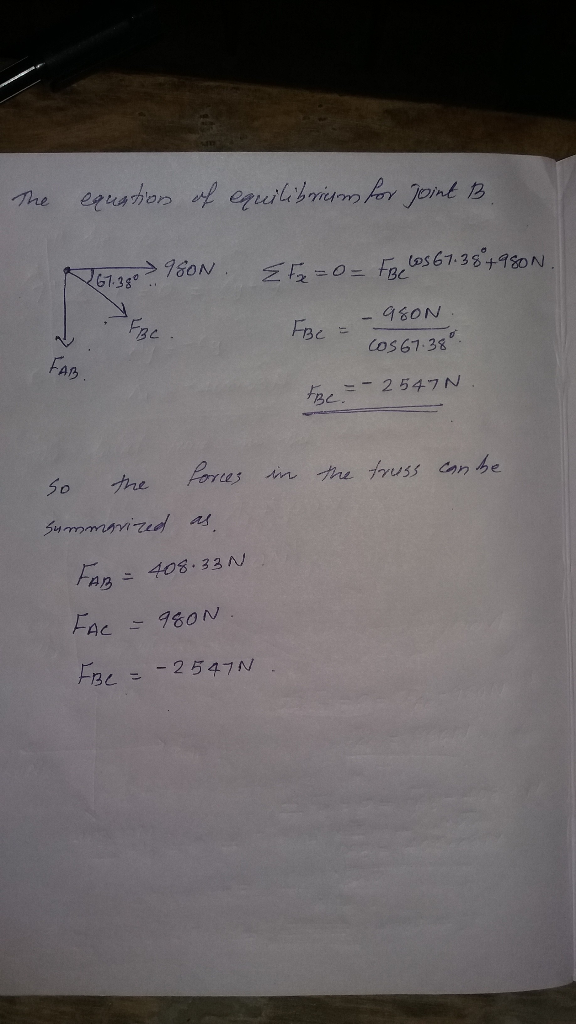 The equation of equilibrium for joint B.
980N. ΣFx = 0 = FBC cos67.38° + 980N.
67.38°
FBC.
FAB.
FBC = - 980N
cos67.38°
FBC = - 2547N
So the forces in the truss can be
summarized as,
FAB = 408.33N
FAC = 980N.
FBC = -2547N.